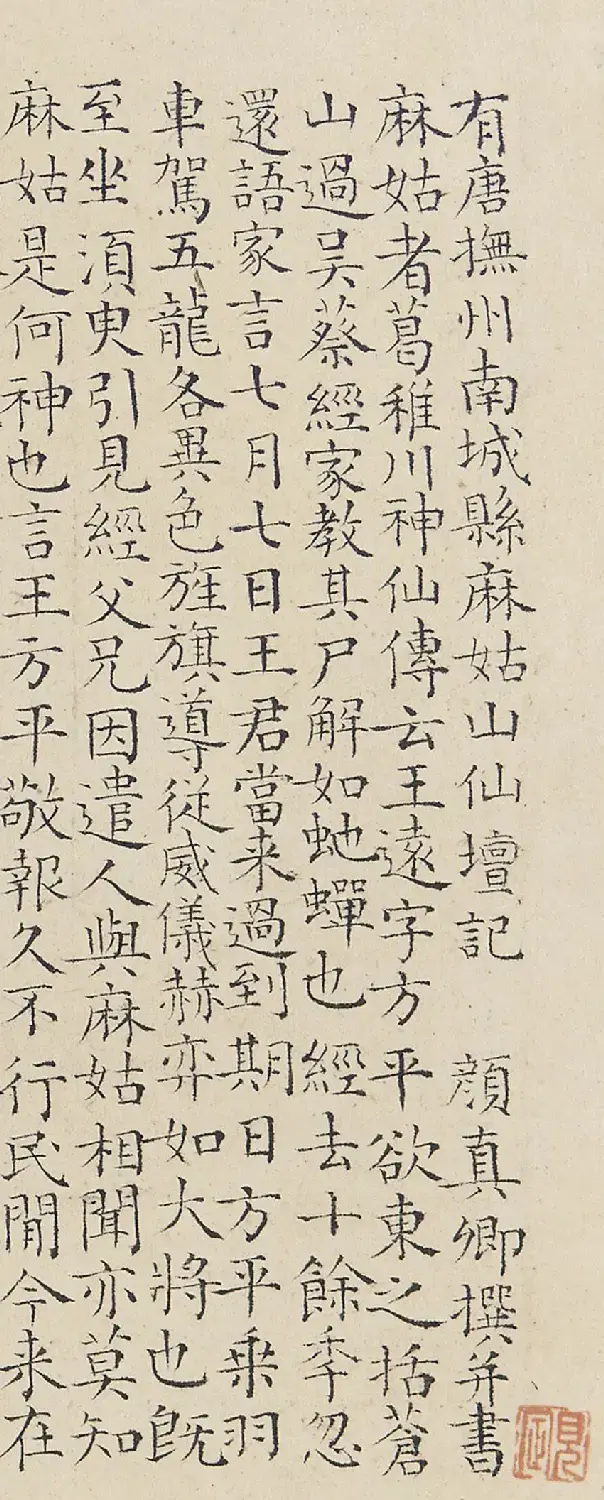 有唐撫州南城縣麻姑山仙壇記 顔真卿撰并書
麻姑者葛稚川神仙傳云王遠字方平欲東之括蒼
山過吴蔡經家教其尸解如虵蟬也經去十餘季忽
還語家言七月七日王君當来過到期日方平乗羽
車駕五龍各異色旌旗導従威儀赫弈如大將也既
至坐湏臾引見經父兄因遣人與麻姑相聞亦莫知
麻姑是何神也言王方平敬報久不行民間今来在